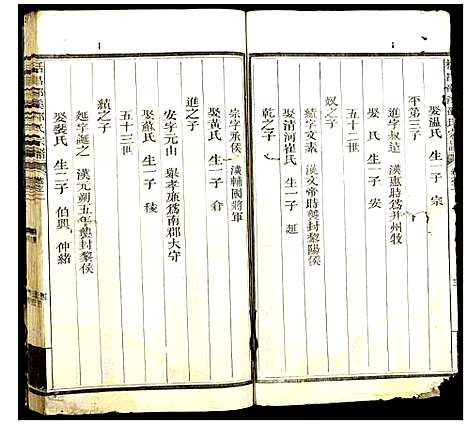 娶溫氏 生一子 宗
平第三子
進字叔達 漢惠時為并州牧
娶氏 生一子 安
五十二世
奴之子
績字文素 漢文帝時襲封黎陽侯
娶清河崔氏 生一子 延
乾之子
宗字承侯 漢輔國將軍
娶黃氏 生一子 倉
進之子
安字元山 舉孝廉為南郡大守
娶蘇氏 生一子 稜
五十三世
績之子
延字誕之 漢元朔五年襲封黎侯
娶裴氏 生二子 伯興 仲緒